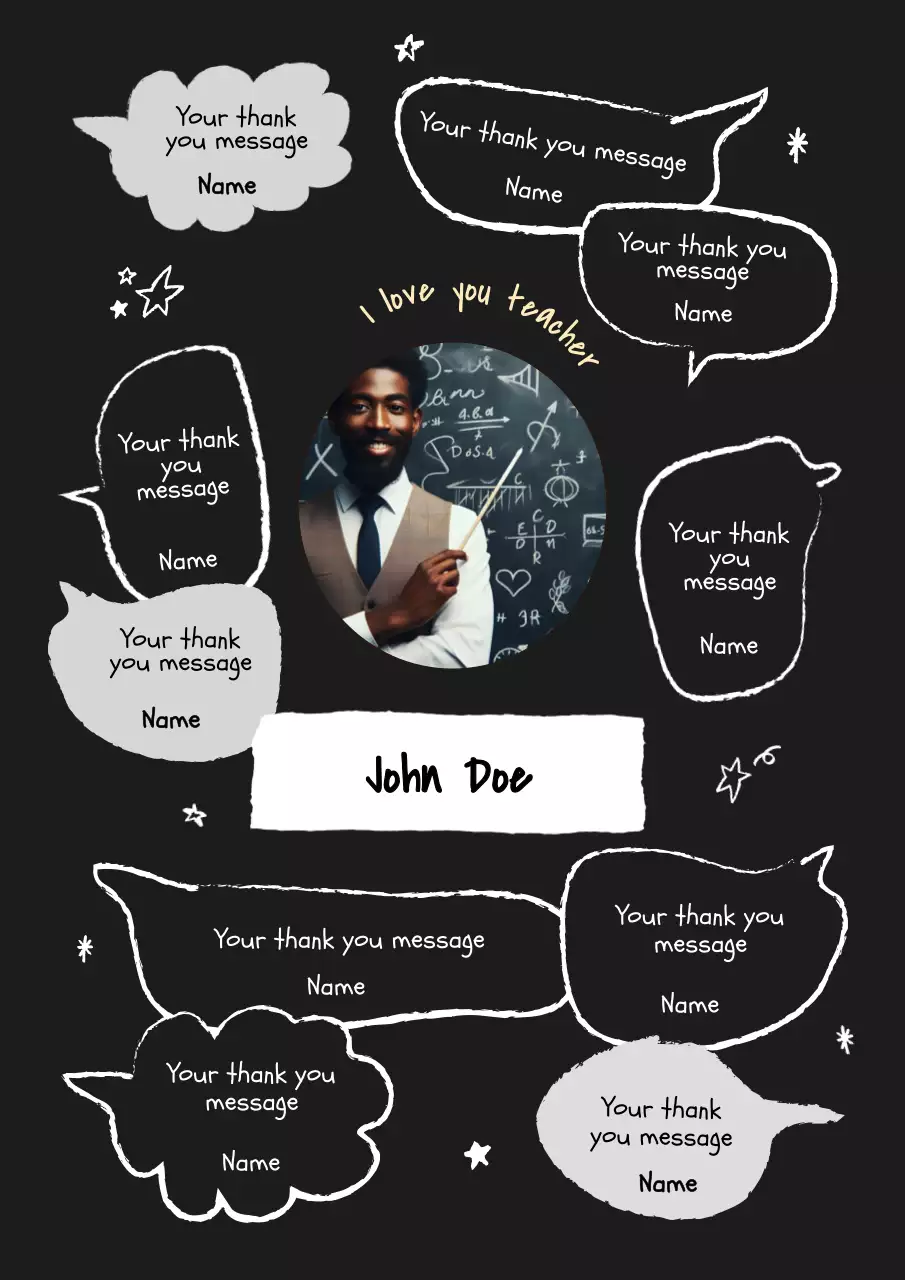 Your thank
you message
Name
Your thank you message
Name
Your thank you
message
Name
I love you teacher
Your thank
you
message
Name
Your thank
you
message
Name
Your thank
you message
Name
John Doe
Your thank you message
Name
Your thank you
message
Name
Your thank you
message
Name
Your thank
you message
Name